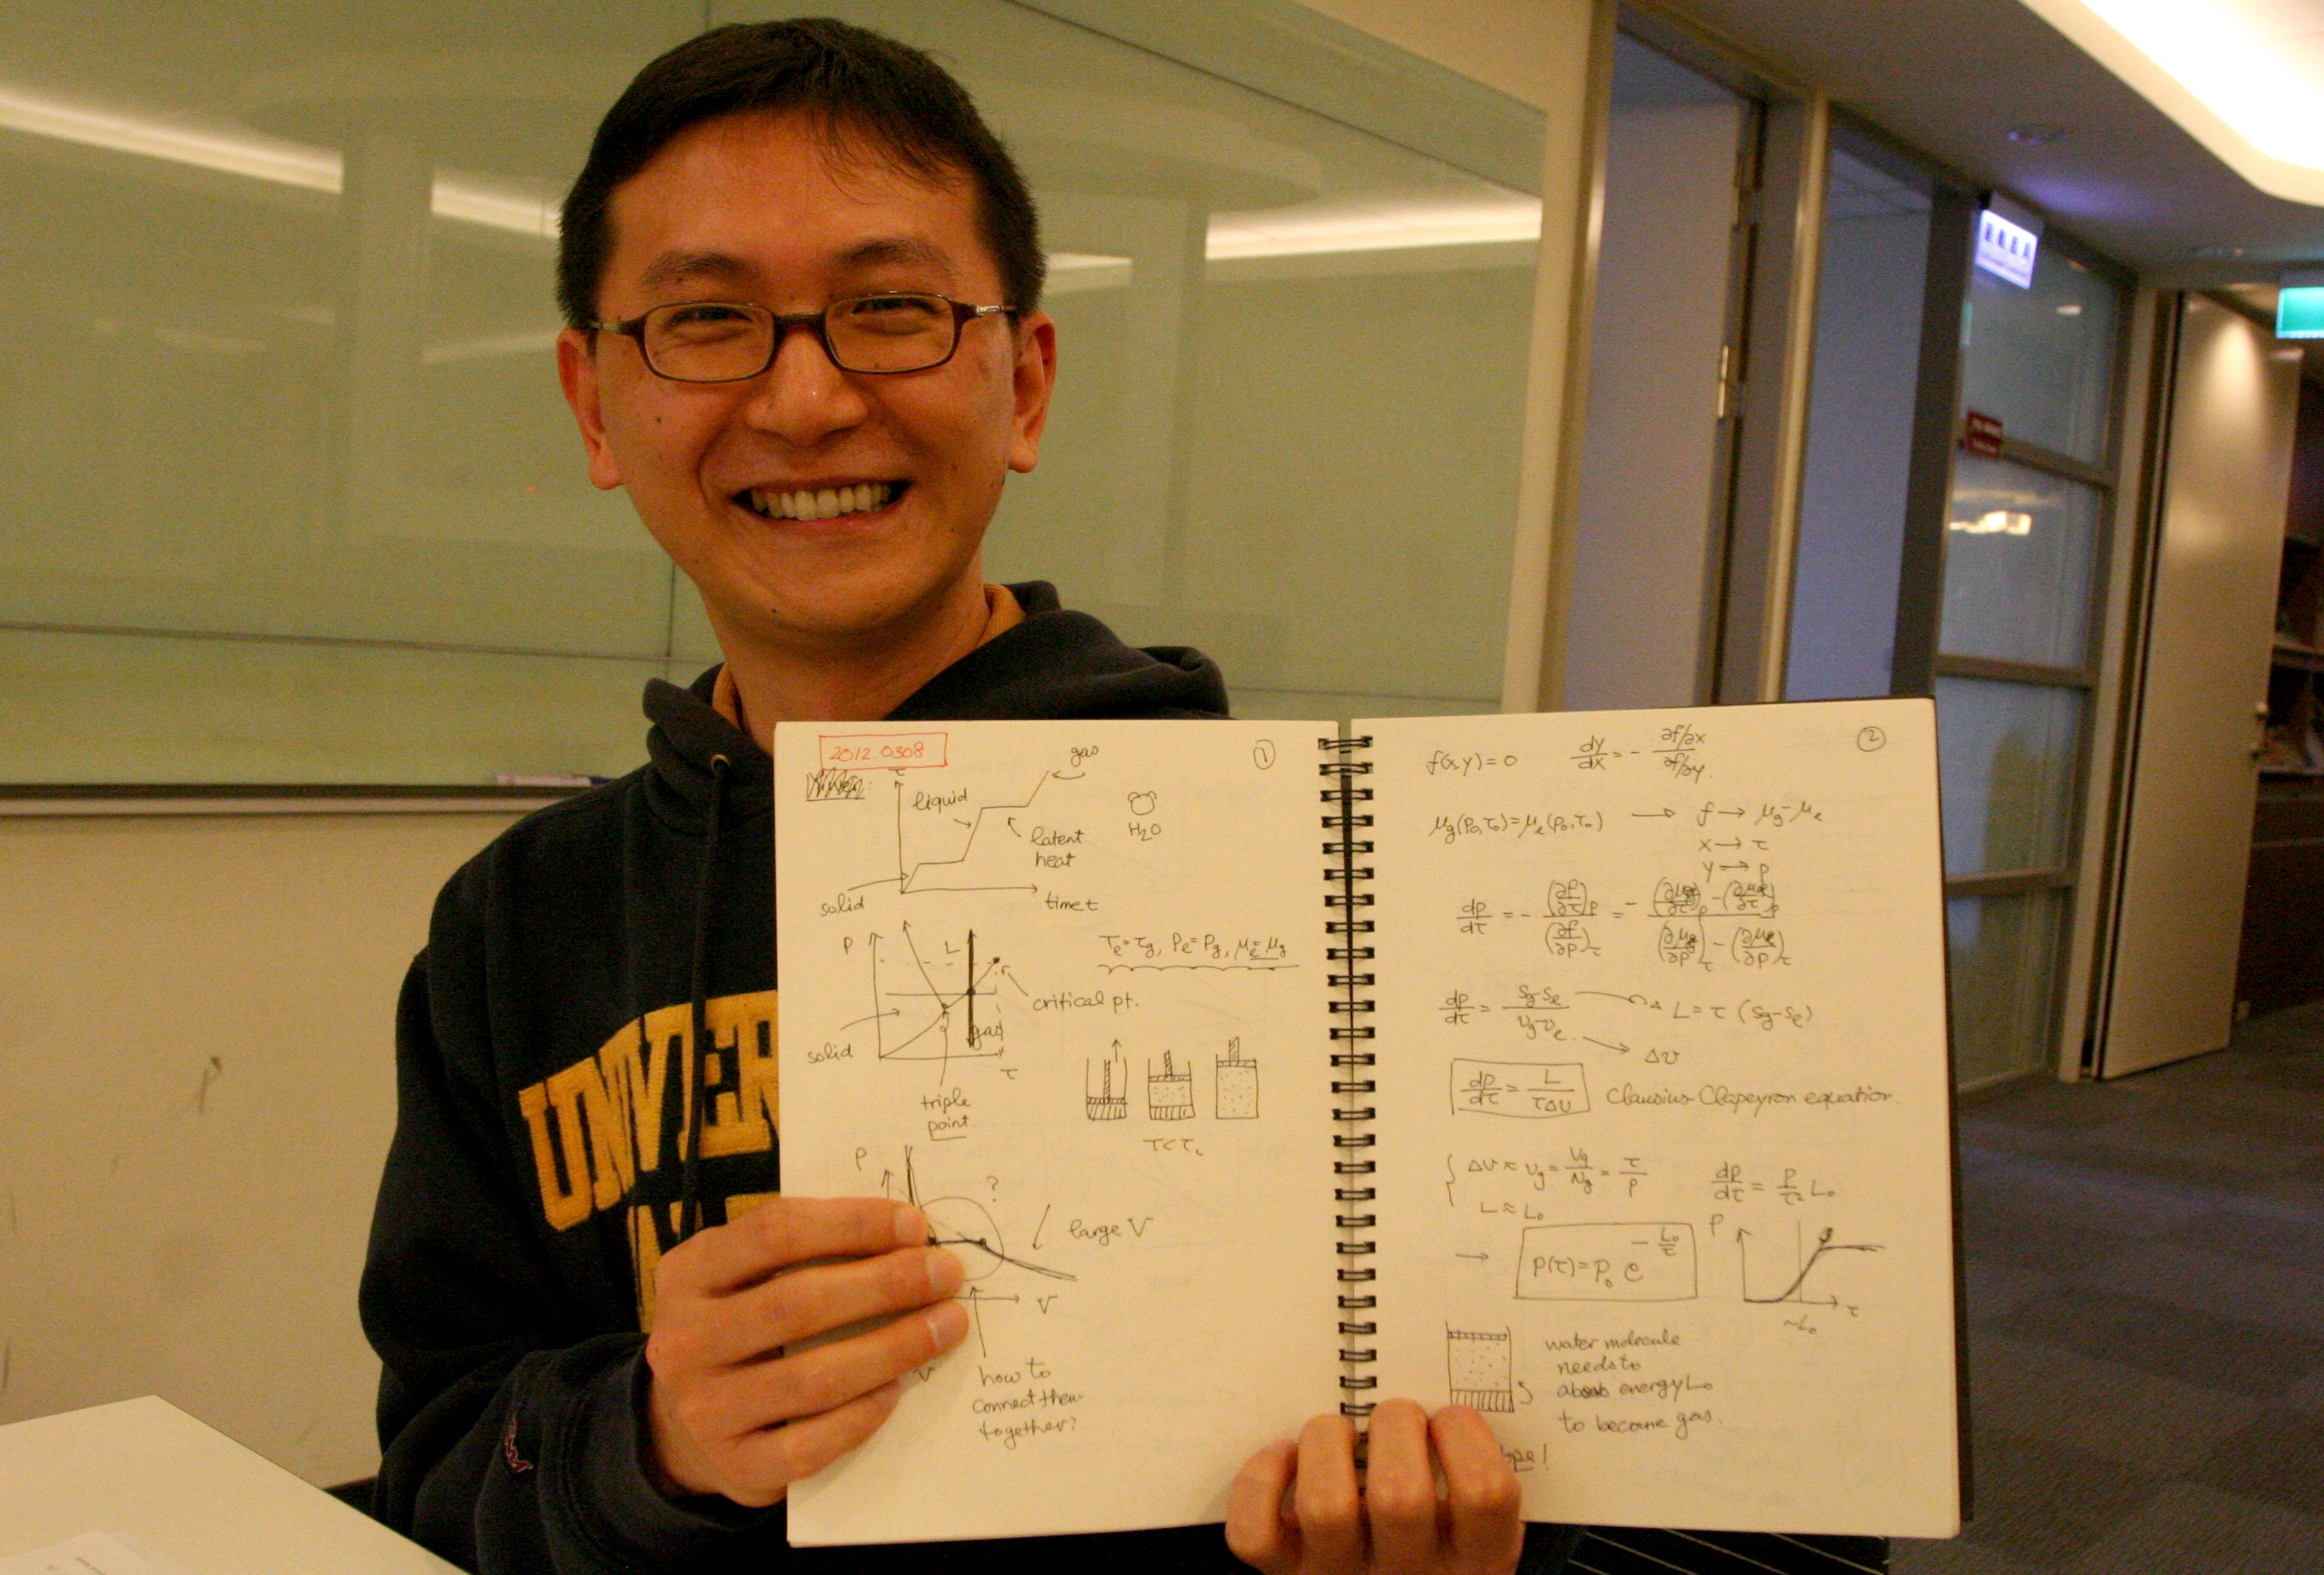 2012.0308
①
τ
gas
liquid
H2O
latent
heat
solid
time t
P
L
τe = τg, Pe = Pg, μe = μg
critical pt.
gas
solid
τ
triple
point.
τ < τc
P
?
large V
V
how to
connect them
together?
②
f(x,y) = 0 dy/dx = - ∂f/∂x / ∂f/∂y.
μg(p0,τ0) = μe(p0,τ0) → f → μg - μe
x → τ
y → p
dp/dτ = - (∂f/∂τ)p / (∂f/∂p)τ = - (∂μg/∂τ)p - (∂μe/∂τ)p / (∂μg/∂p)τ - (∂μe/∂p)τ
dp/dτ = sg - se / vg - ve L = τ (sg - se)
Δv
dp/dτ = L / τΔv Clausius-Clapeyron equation.
Δv ≈ vg = Vg/Ng = τ/p dp/dτ = p/τ² L0
L ≈ L0
→ p(τ) = p0 e^(-L0/τ)
P
τ
~L0
water molecule
needs to
absorb energy L0
to become gas.
UNIVER